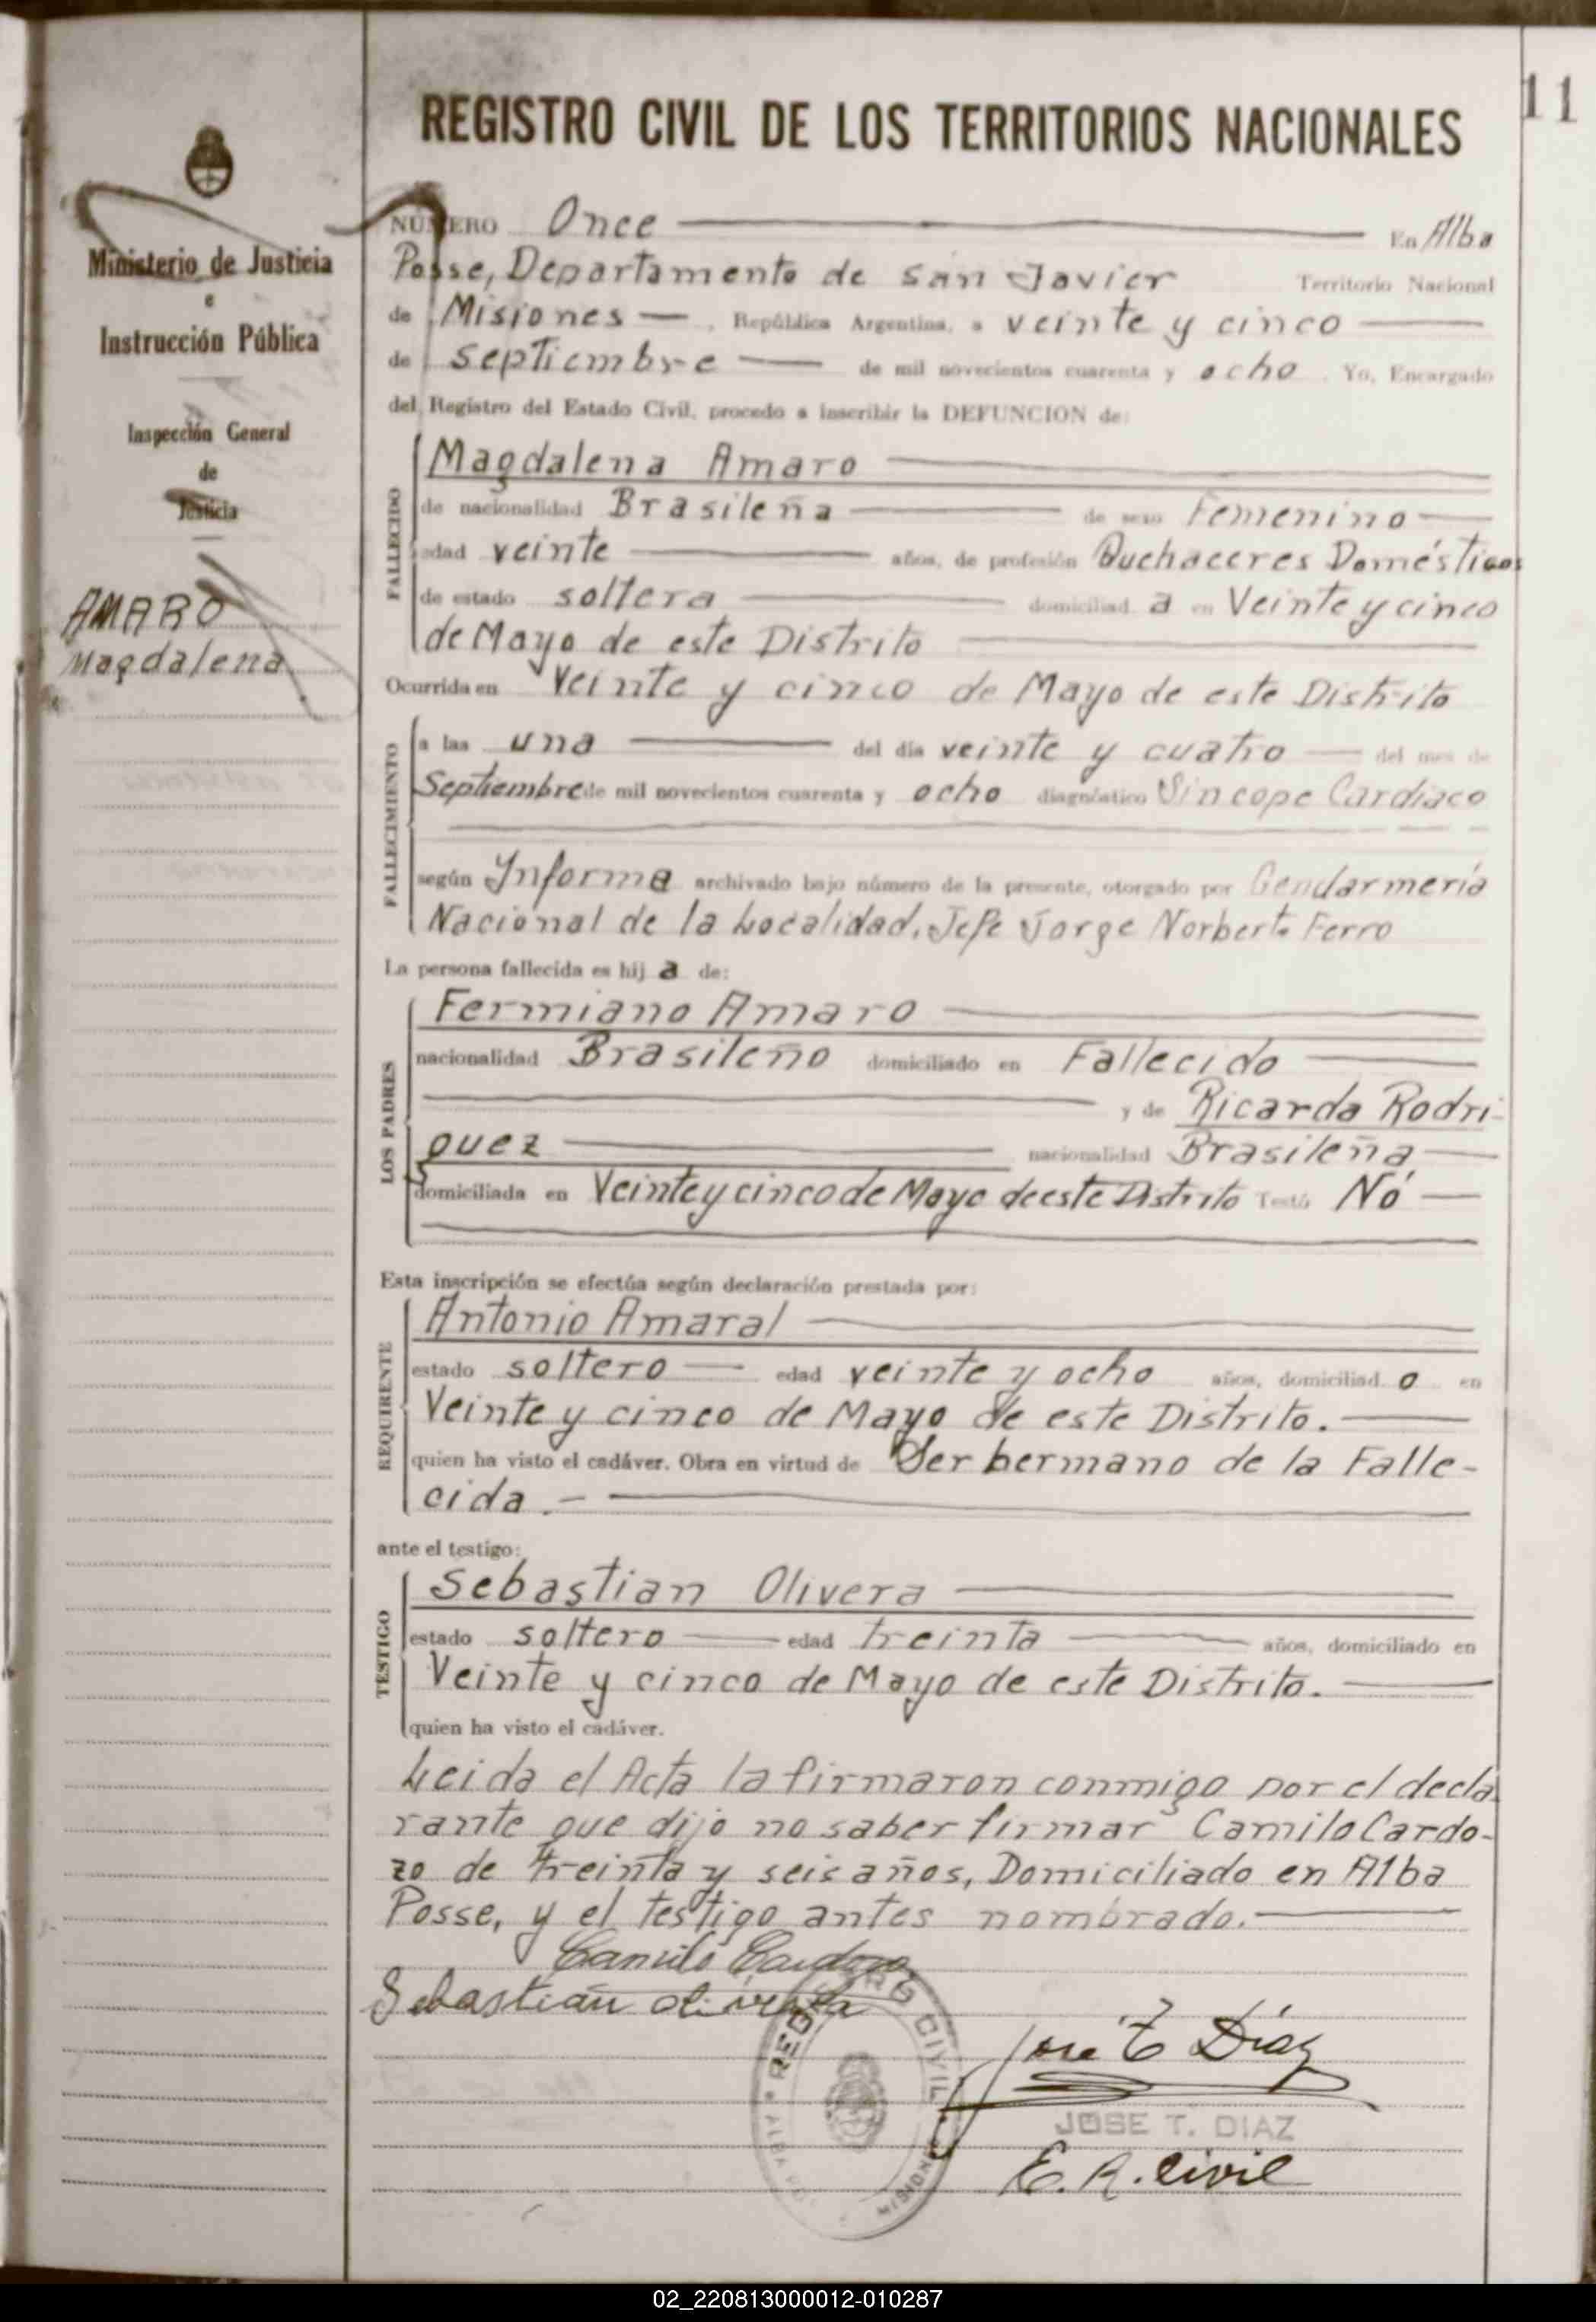 11
REGISTRO CIVIL DE LOS TERRITORIOS NACIONALES
Ministerio de Justicia
e
Instrucción Pública
Inspección General
de
Justicia
AMARO
Magdalena
NÚMERO Once En Alba
Posse, Departamento de San Javier Territorio Nacional
de Misiones, República Argentina, a veinte y cinco
de Septiembre de mil novecientos cuarenta y ocho. Yo, Encargado
del Registro del Estado Civil, procedo a inscribir la DEFUNCION de:
FALLECIDO
Magdalena Amaro
de nacionalidad Brasileña de sexo Femenino
edad veinte años, de profesión Quehaceres Domésticos
de estado soltera domiciliad a en Veinte y cinco
de Mayo de este Distrito
Ocurrida en Veinte y cinco de Mayo de este Distrito
FALLECIMIENTO
a las una del día veinte y cuatro del mes de
Septiembre de mil novecientos cuarenta y ocho diagnóstico Sincope Cardiaco
según Informe archivado bajo número de la presente, otorgado por Gendarmería
Nacional de la Localidad. Jefe Jorge Norberto Ferro
La persona fallecida es hij a de:
LOS PADRES
Fermiano Amaro
nacionalidad Brasileño domiciliado en Fallecido
y de Ricarda Rodri-
guez nacionalidad Brasileña
domiciliada en Veinte y cinco de Mayo de este Distrito Testó No
Esta inscripción se efectúa según declaración prestada por:
REQUIRENTE
Antonio Amaral
estado soltero edad veinte y ocho años, domiciliad o en
Veinte y cinco de Mayo de este Distrito.
quien ha visto el cadáver. Obra en virtud de Ser hermano de la Falle-
cida.-
ante el testigo:
TESTIGO
Sebastian Olivera
estado soltero edad treinta años, domiciliado en
Veinte y cinco de Mayo de este Distrito.
quien ha visto el cadáver.
Leida el Acta la firmaron conmigo por el decla
rante que dijo no saber firmar Camilo Cardo-
zo de treinta y seis años, Domiciliado en Alba
Posse, y el testigo antes nombrado.
Camilo Cardozo
Sebastian olivera
REGISTRO CIVIL
ALBA
MISIONES
Jose T Diaz
JOSE T. DIAZ
E. R. Civil
02_220813000012-010287